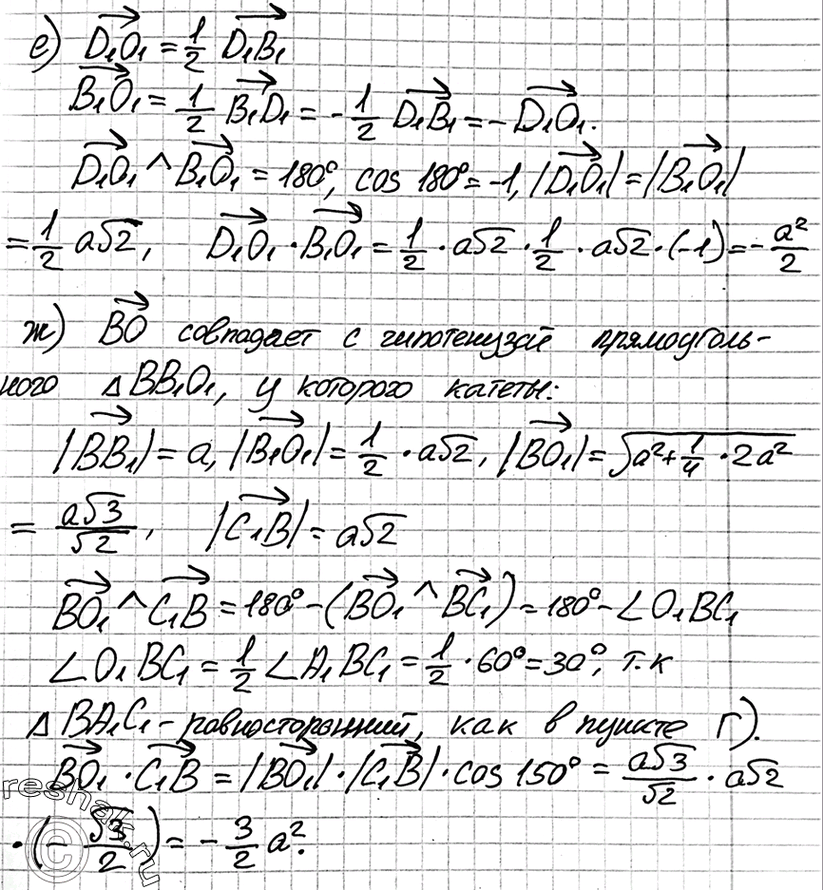 е) D₁O₁ = 1/2 D₁B₁
B₁O₁ = 1/2 B₁D₁ = -1/2 D₁B₁ = -D₁O₁.
D₁O₁ ^ B₁O₁ = 180°, cos 180° = -1, |D₁O₁| = |B₁O₁|
= 1/2 a√2, D₁O₁ · B₁O₁ = 1/2 · a√2 · 1/2 · a√2 · (-1) = -a²/2
ж) BO совпадает с гипотенузой прямоуголь-
ного △BB₁O₁, у которого катеты:
|BB₁| = a, |B₁O₁| = 1/2 · a√2, |BO₁| = √(a² + 1/4 · 2a²)
= a√3/√2, |C₁B| = a√2
BO₁ ^ C₁B = 180° - (BO₁ ^ BC₁) = 180° - ∠O₁BC₁
∠O₁BC₁ = 1/2 ∠A₁BC₁ = 1/2 · 60° = 30°, т.к
△BA₁C₁ - равносторонний, как в пункте г).
BO₁ · C₁B = |BO₁| · |C₁B| · cos 150° = a√3/√2 · a√2
· (-√3/2) = -3/2 a².
reshak.ru
©